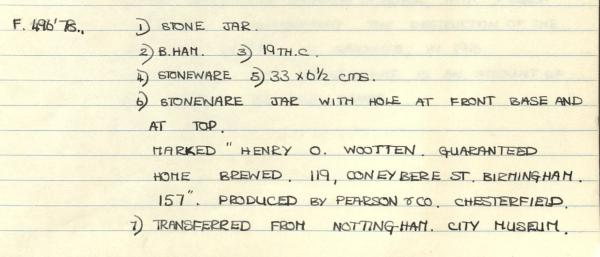 F. 496'78., 1) STONE JAR.
2) B.HAM. 3) 19TH.C.
4) STONEWARE 5) 33 x 6½ CMS.
6) STONEWARE JAR WITH HOLE AT FRONT BASE AND
AT TOP.
MARKED "HENRY O. WOOTTEN. GUARANTEED
HOME BREWED. 119, CONEYBERE ST. BIRMINGHAM.
157". PRODUCED BY PEARSON & CO. CHESTERFIELD.
7) TRANSFERRED FROM NOTTINGHAM. CITY MUSEUM.